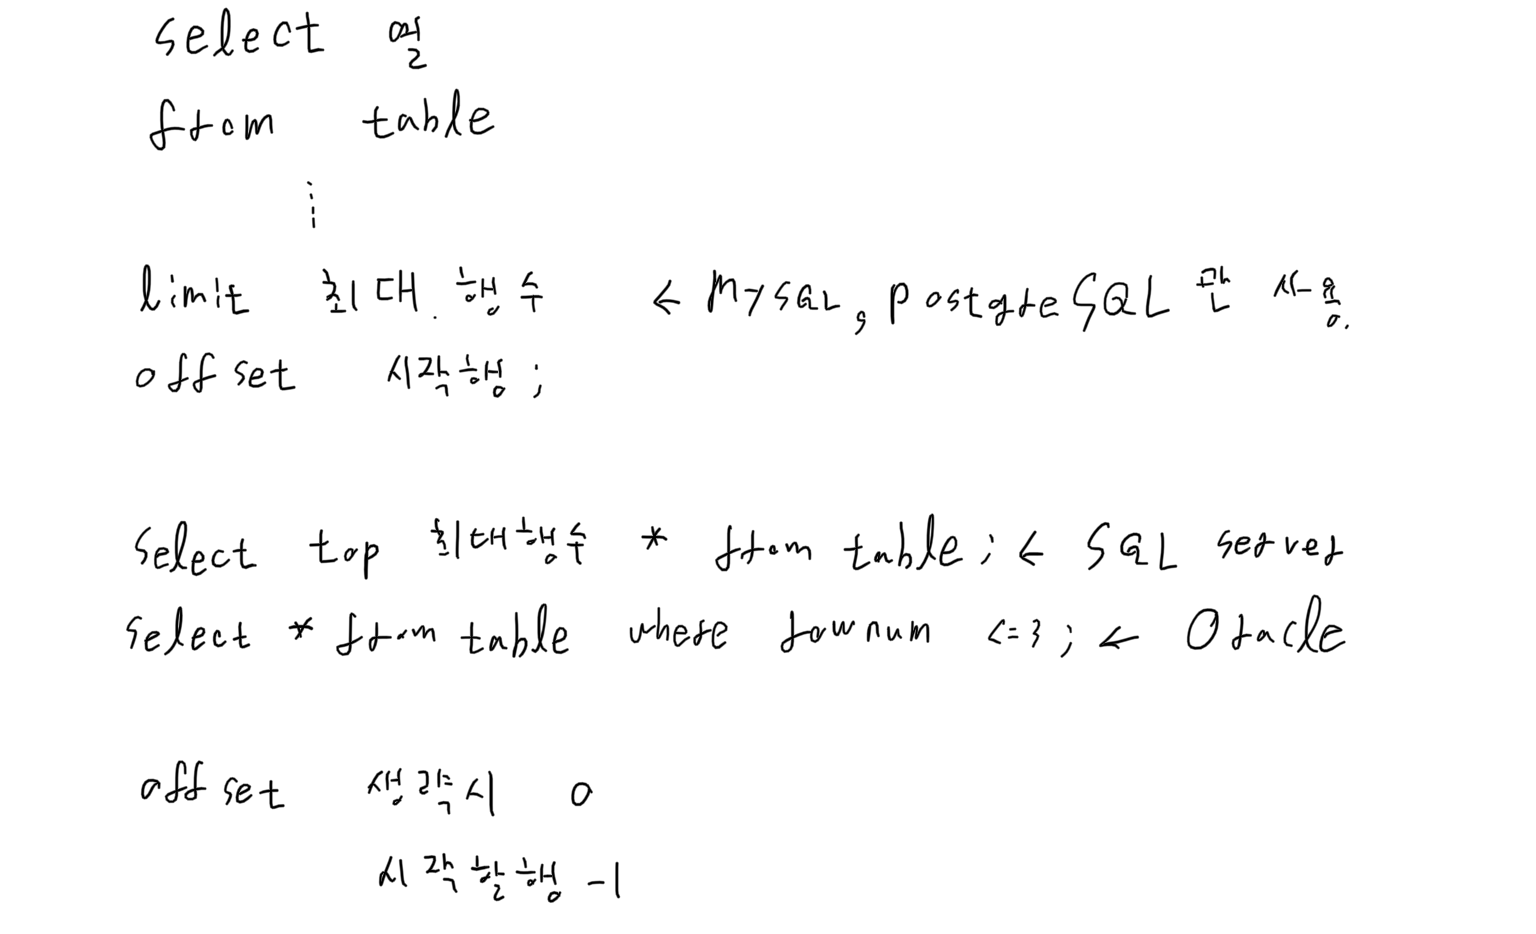 select 열
from table
limit 최대 행수 ← MySQL, PostgreSQL 만 사용.
offset 시작행 ;
Select top 최대행수 * from table ; ← SQL server
select * from table where rownum <=3 ; ← Oracle
offset 생략시 0
시작할행 -1